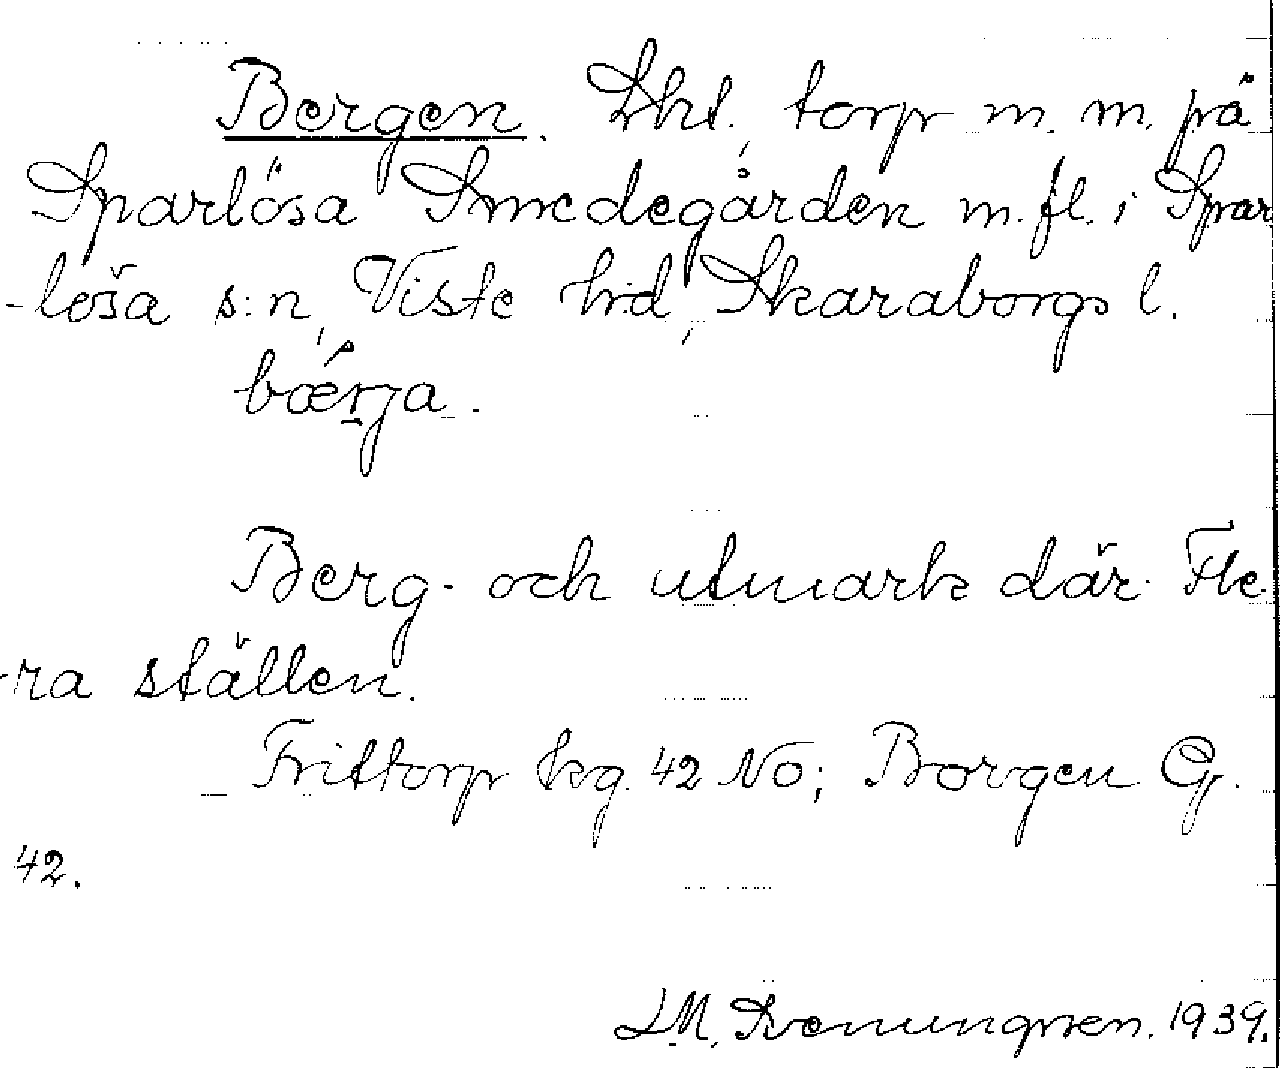 Bergen. Lht, torp m. m. på
Sparlösa Smedegården m. fl. i Spar
-lösa s:n, Viste hd, Skaraborgs l.
bǽrja.
Berg- och utmark där. Fle
-ra ställen.
Frittorp kg. 42 NO; Borgen G.
42.
L.M. Svenungsson. 1939.